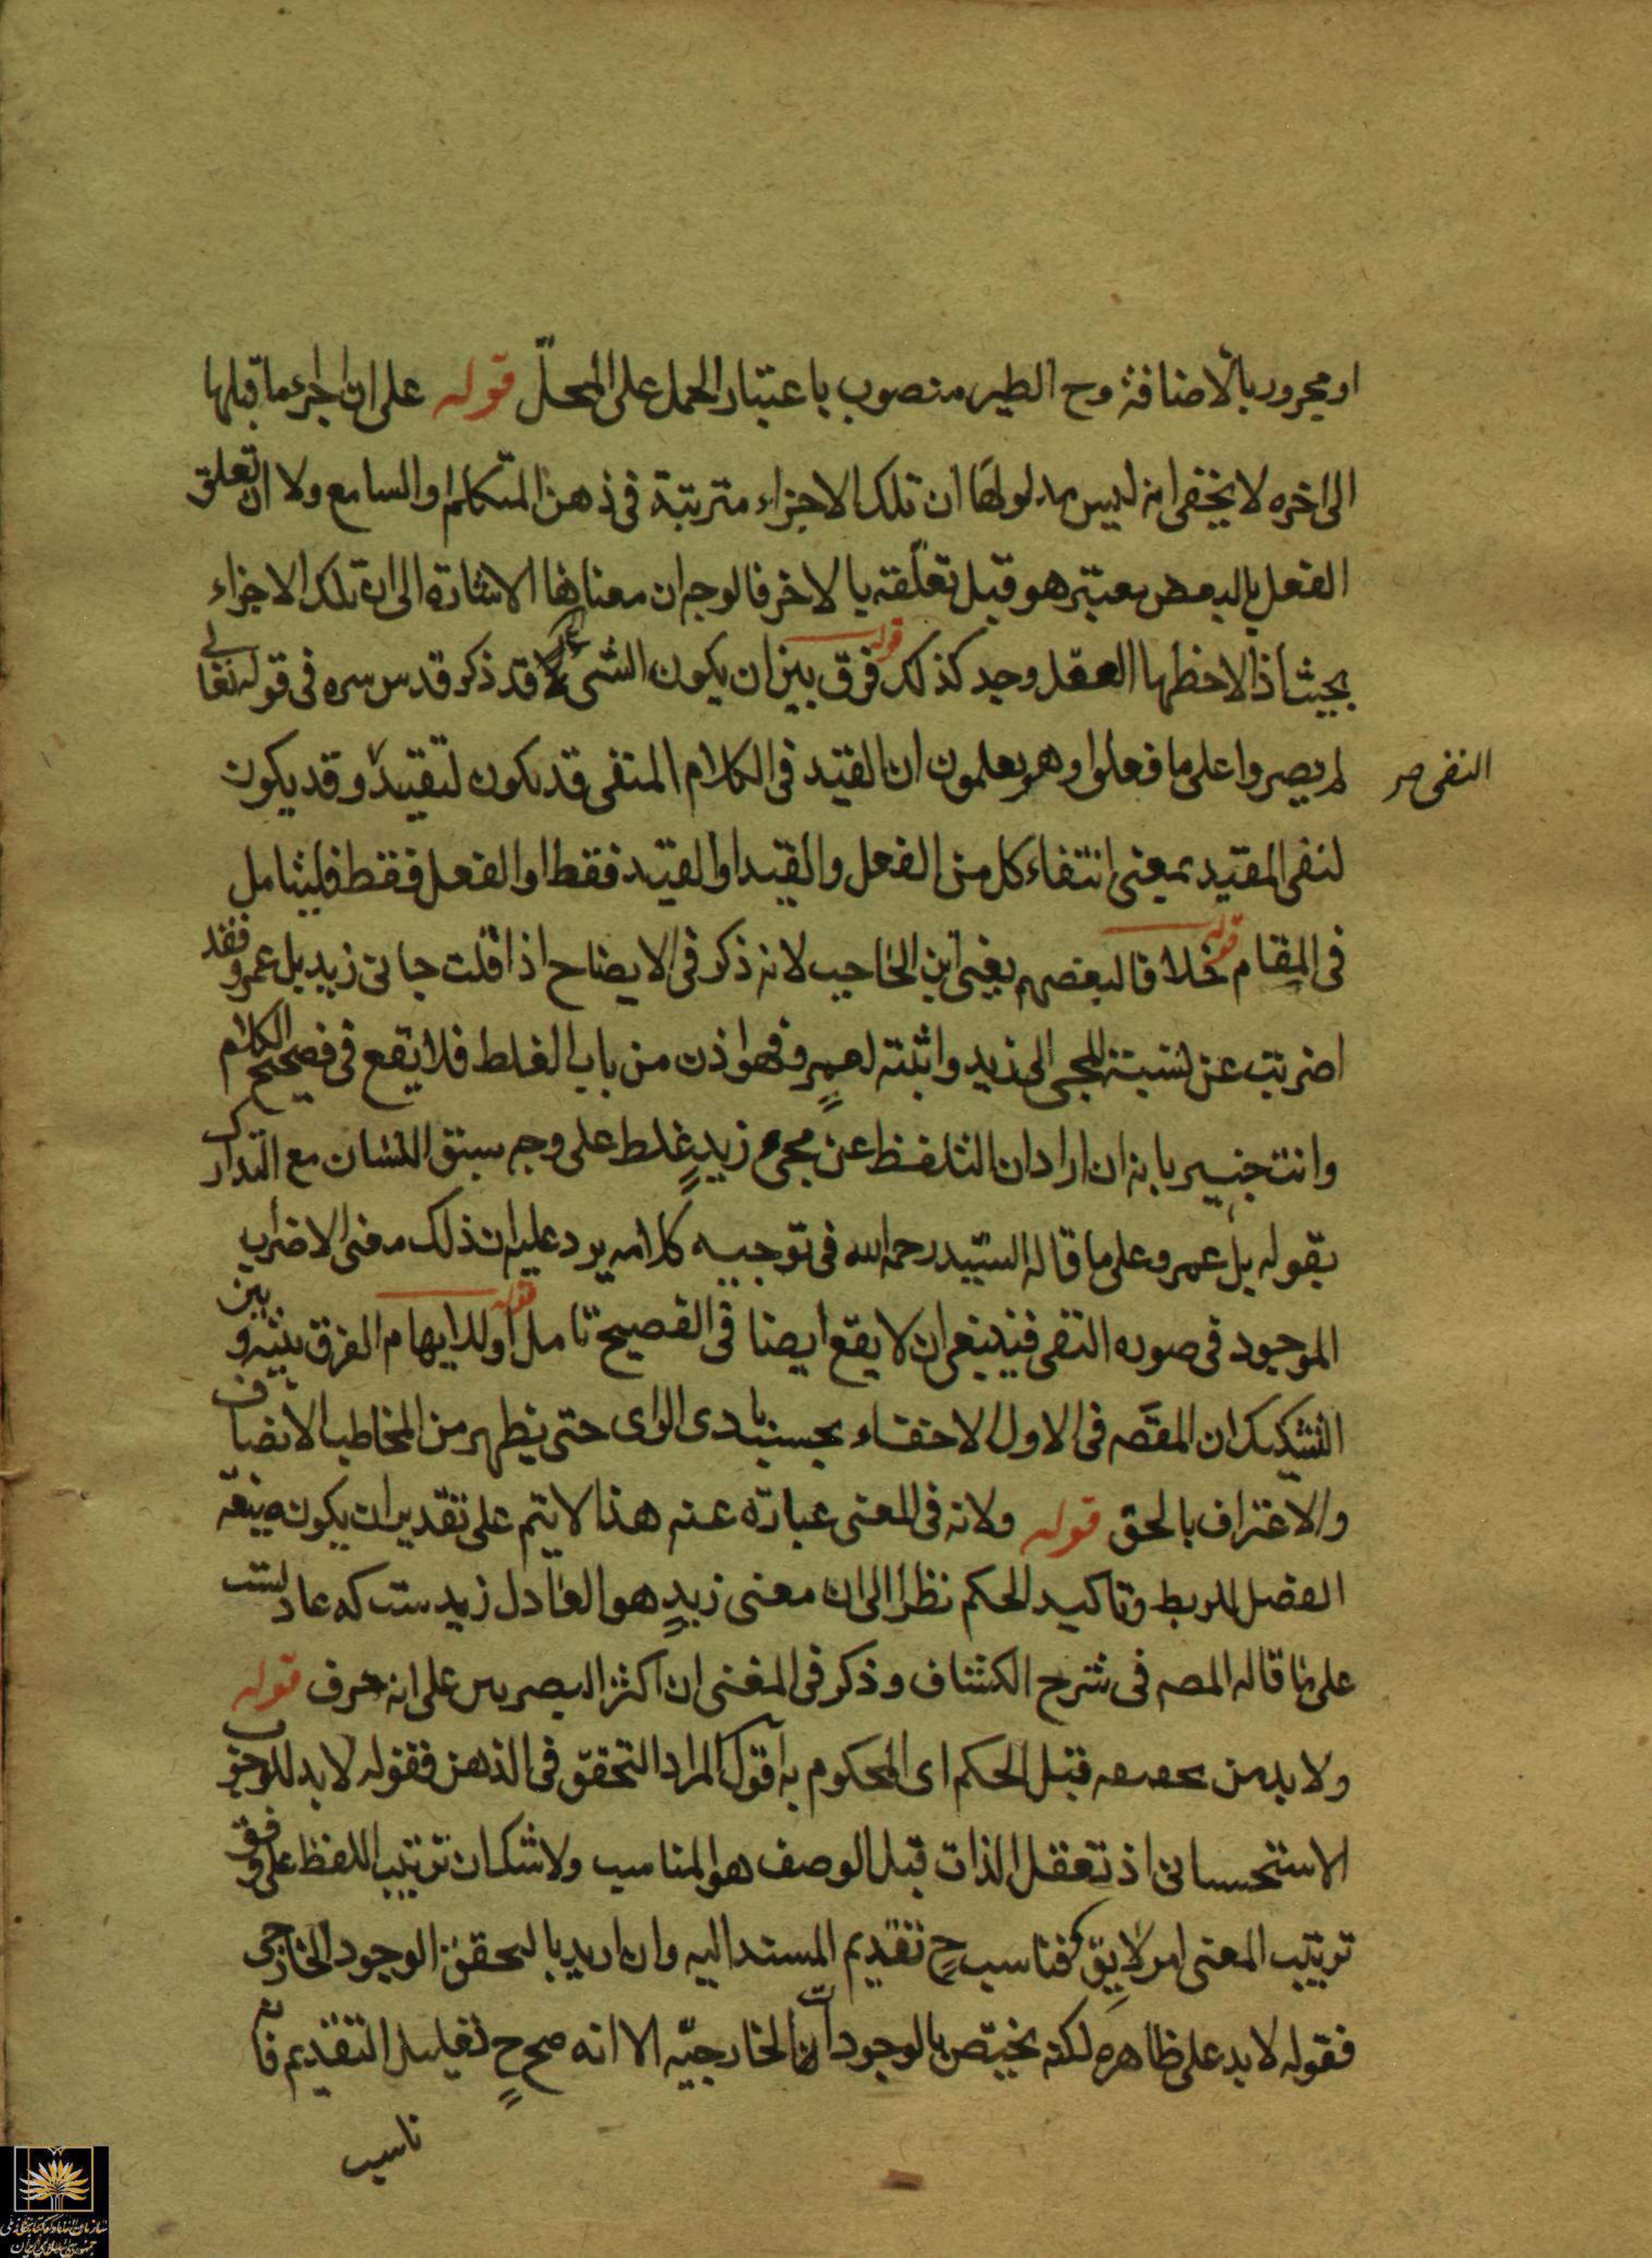 او مجرور بالاضافة وح الطير منصوب باعتبار الحمل على المحلّ قوله على ان اجراء ما قبلها
الى اخره لا يخفى انه ليس مدلولها ان تلك الاجزاء مترتبة فى ذهن المتكلم او السامع ولا ان تعلق
الفعل بالبعض معتبر هو قبل تعلّقه بالاخر فالوجه ان معناها الاشارة الى ان تلك الاجزاء
بحيث اذا لاحظها العقل وجد كذلك قوله فرق بين ان يكون الشئ قد ذكر قدس سره فى قوله تعالى
لم يصروا على ما فعلوا وهم يعلمون ان القيد فى الكلام المنفى قد يكون لتقييد وقد يكون
النفى صح
لنفى المقيد بمعنى انتفاء كل من الفعل والقيد او القيد فقط او الفعل فقط فليتامل
فى المقام قوله خلافا لبعضهم يعنى ابن الحاجب لانه ذكر فى الايضاح اذا قلت جانى زيد بل عمرو فقد
اضربت عن نسبة المجى الى زيد واثبته لعمرو فهو اذن من باب الغلط فلا يقع فى فصيح الكلام
وانت خبير بانه ان اراد ان التلفظ عن مجى زيدٍ غلط على وجه سبق اللسان مع التدارك
بقوله بل عمرو على ما قاله السيّد رحمه الله فى توجيه كلامه يرد عليه ان ذلك معنى الاضراب
الموجود فى صوره النفى فينبغى ان لا يقع ايضا فى الفصيح تامل قوله اوللايهام الفرق بينه وبين
التشكيك ان المقصه فى الاول الاخفاء بحسب بادى الراى حتى يظهر من المخاطب الانصاف
والاعتراف بالحق قوله ولانه فى المعنى عبارة عنه هذا لا يتم على تقدير ان يكون صيغة
الفصل للربط وتاكيد الحكم نظرا الى ان معنى زيدٍ هو العادل زيدست كه عادلست
على ما قاله المصه فى شرح الكشاف وذكر فى المغنى ان اكثر البصريين على انه حرف قوله
ولا بد من تحققه قبل الحكم اى المحكوم به اقول المراد التحقق فى الذهن فقوله لا بد للوجوب
الاستحسانى اذ تعقل الذات قبل الوصف هو المناسب ولا شك ان ترتيب اللفظ على وفق
ترتيب المعنى امر لايق فناسب ح تقديم المسند اليه وان اريد بالتحقق الوجود الخارجى
فقوله لا بد على ظاهره لكنه يختص بالوجودات الخارجيّه الا انه صح ح تعليل التقديم فانه
ناسب